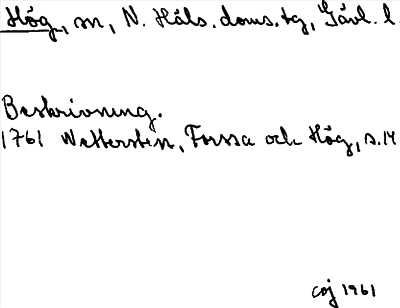 Hög, sn, N. Häls. doms. tg, Gävl. l.
Beskrivning.
1761 Wettersten, Forssa och Hög, s. 14
CGJ 1961